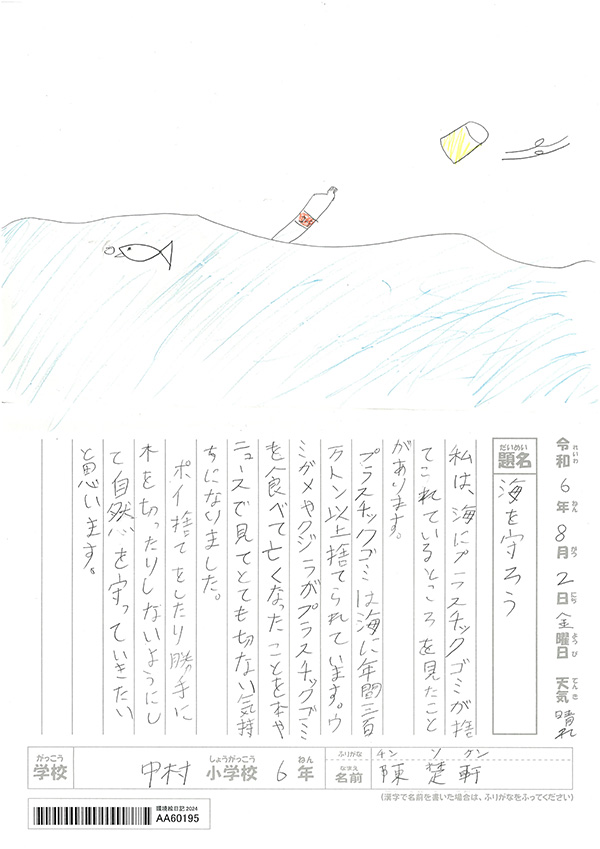 令和6年8月2日金曜日 天気 晴れ
れいわ ねん がつ にち ようび てんき
だいめい
題名 海を守ろう
私は、海にプラスチックゴミが捨
てこれているところを見たこと
があります。
プラスチックゴミは海に年間三百
万トン以上捨てられています。ウ
ミガメやクジラがプラスチックゴミ
を食べて亡くなったことを本や
ニュースで見てとても切ない気持
ちになりました。
ポイ捨てをしたり勝手に
木を切ったりしないようにし
て自然を守っていきたい
と思います。
がっこう しょうがっこう ねん ふりがな チン ソ ケン
学校 中村 小学校 6年 なまえ 名前 陳 楚 軒
(漢字で名前を書いた場合は、ふりがなをふってください)
環境絵日記2024
AA60195